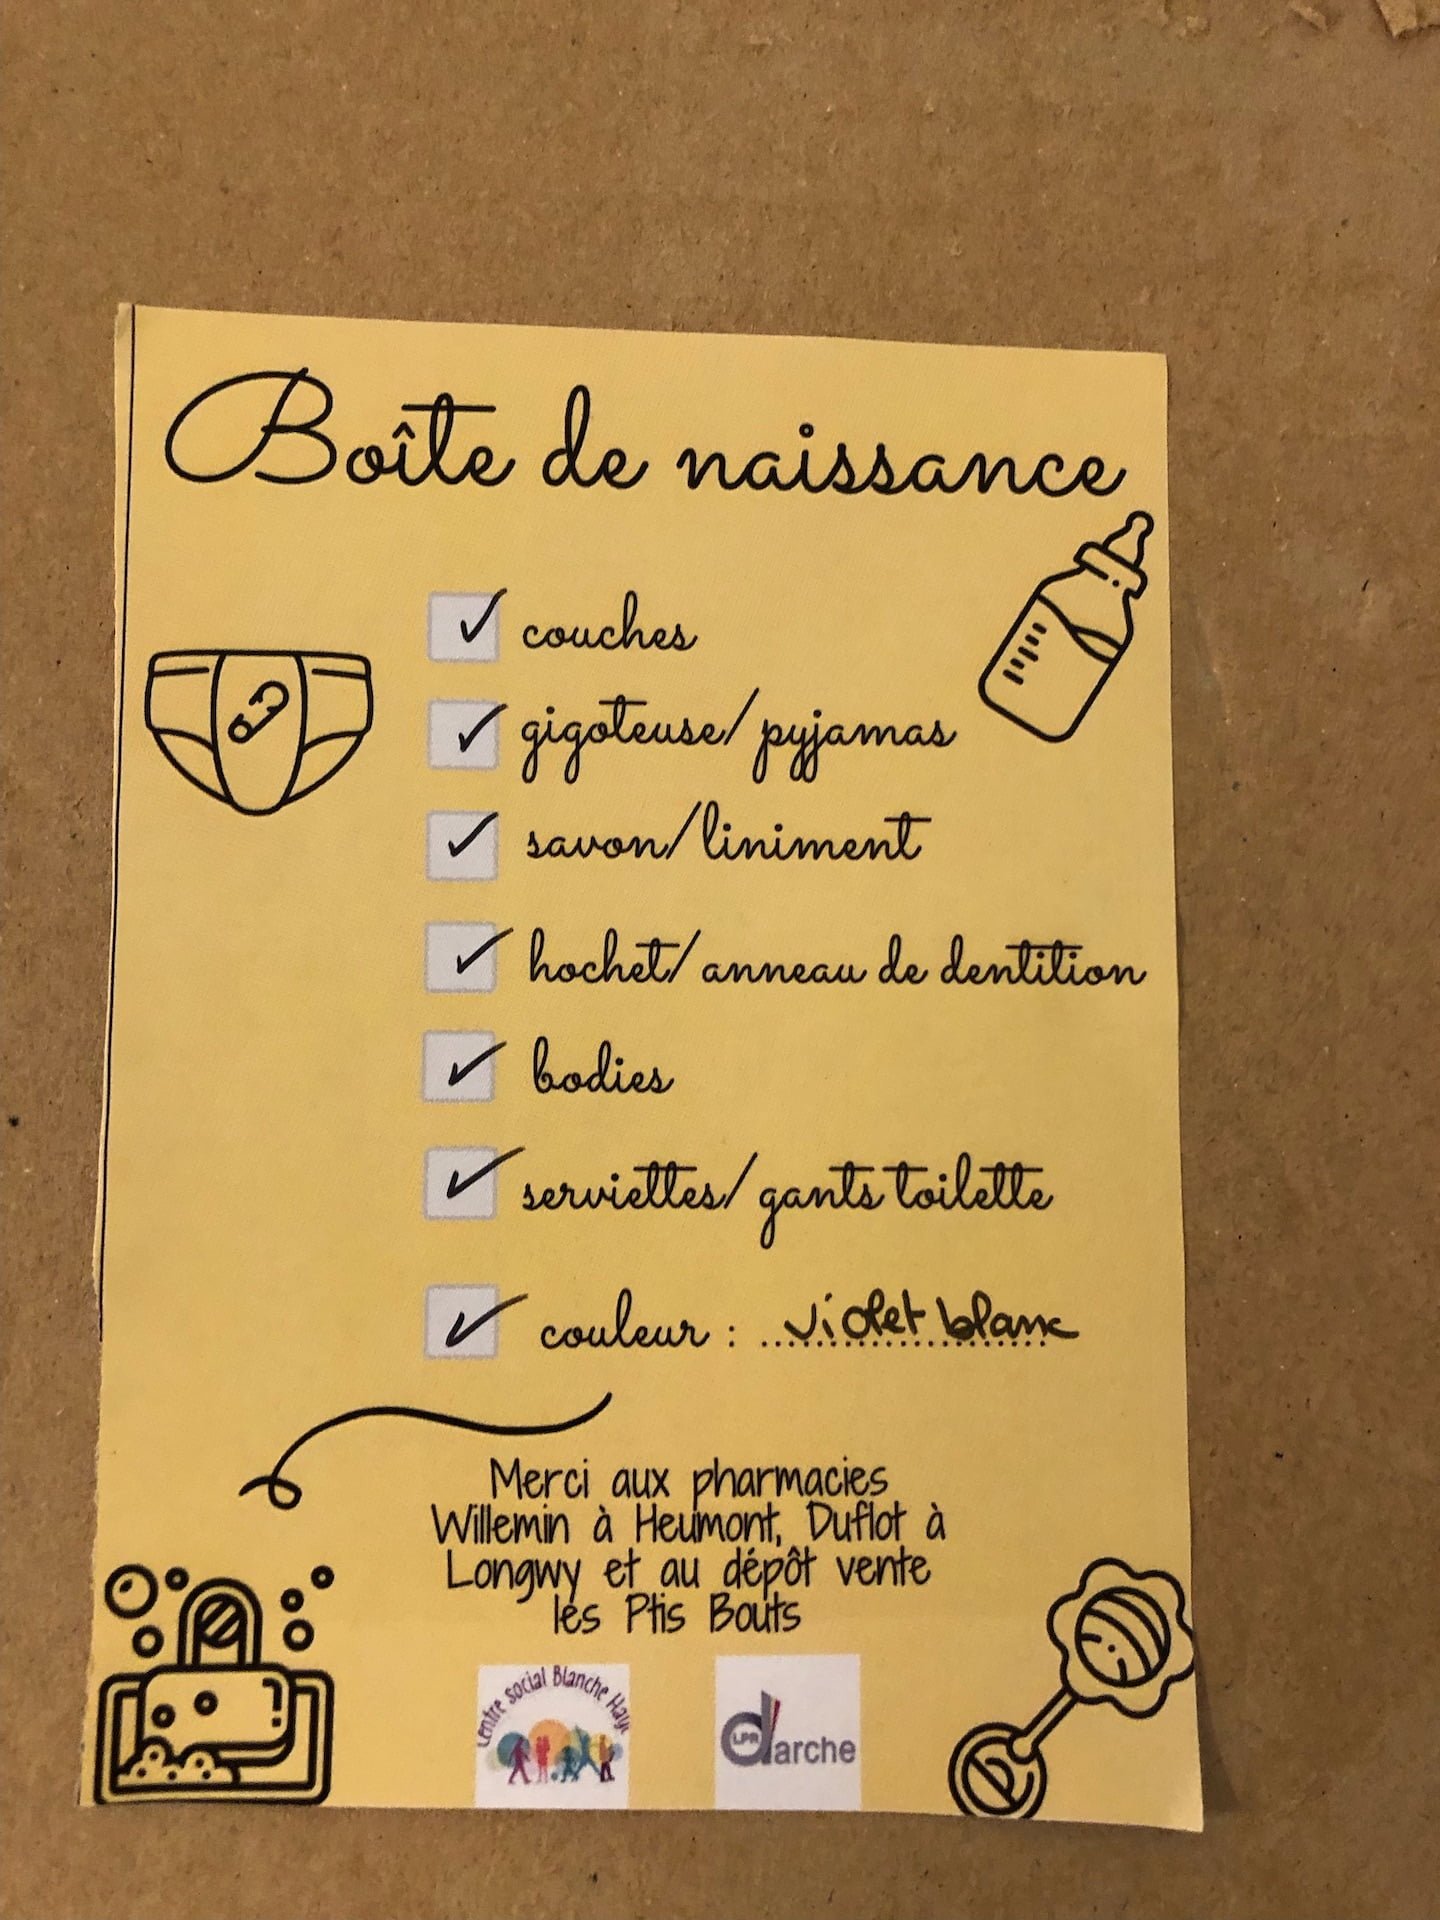 Boîte de naissance
couches
gigoteuse/pyjamas
savon/liniment
hochet/anneau de dentition
bodies
serviettes/gants toilette
couleur : ...violet blanc
Merci aux pharmacies
Willemin à Heumont, Duflot à
Longwy et au dépôt vente
les Ptis Bouts
Centre social Blanche Haye
LPR
darche